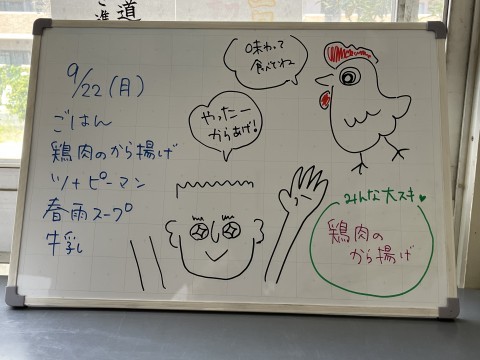 道
9/22(月)
ごはん
鶏肉のから揚げ
ツナピーマン
春雨スープ
牛乳
味わって
食べてね
やったー
からあげ!
みんな大スキ♥
鶏肉の
から揚げ